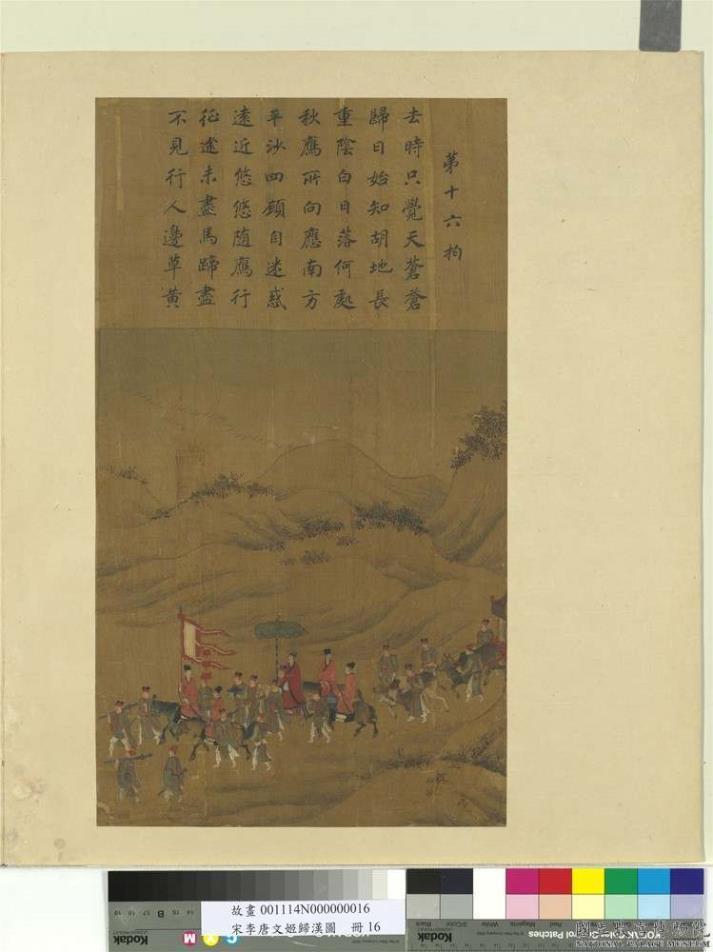 第十六拍
去時只覺天蒼蒼
歸日始知胡地長
重陰白日落何處
秋鴈所向應南方
平沙四顧自迷惑
遠近悠悠隨鴈行
征途未盡馬蹄盡
不見行人邊草黃
故畫 001114N000000016
宋李唐文姬歸漢圖 冊 16
Kodak
B
M
Kodak
KODAK Color Control Patches
Black
3/Color
White
Magenta
Red
NATIONAL PALACE MUSEUM